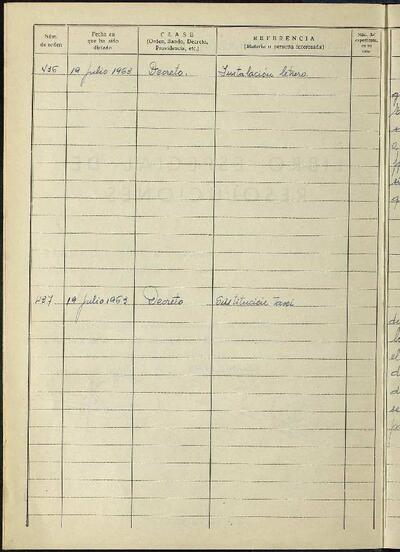 Núm. de orden
Fecha en que ha sido dictado
CLASE
(Orden, Bando, Decreto, Providencia, etc.)
REFERENCIA
(Materia o persona interesada)
Núm. del expediente, en su caso
436 19 julio 1963 Decreto. Instalación letrero.
LIBRO ESPECIAL DE
RESOLUCIONES
437 19 julio 1963 Decreto Sustitución taxi